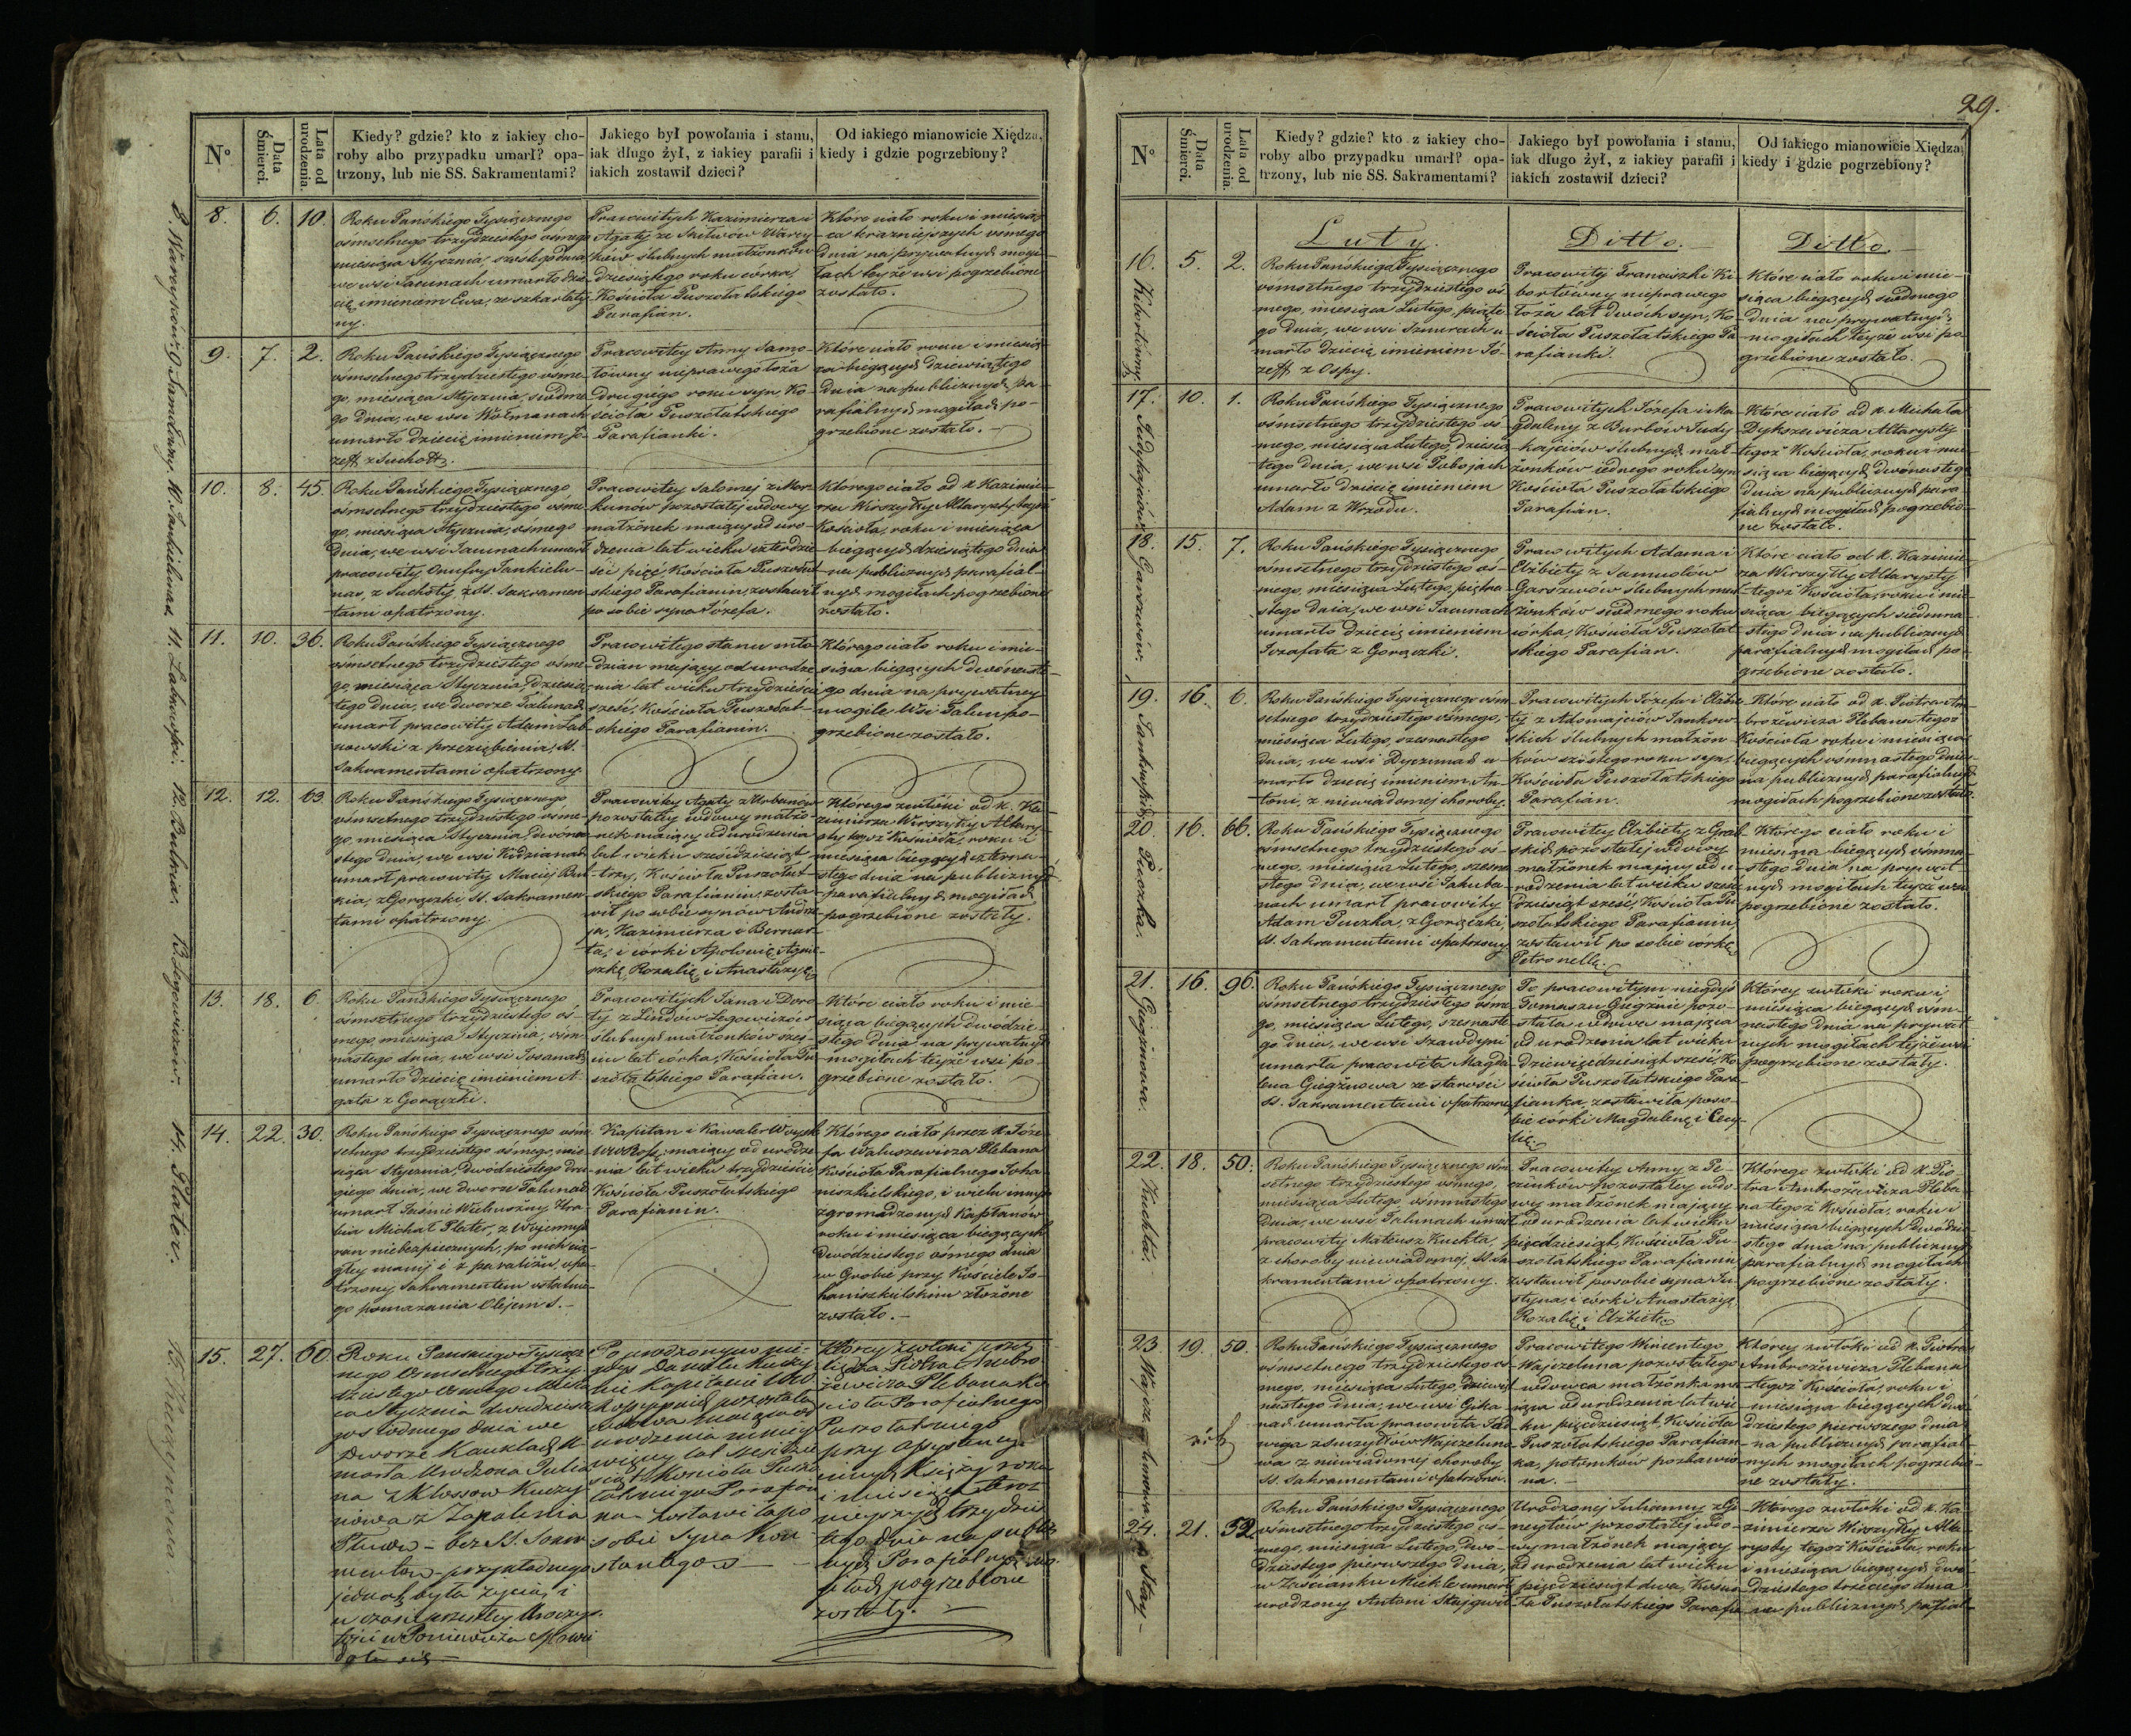 N°
Data Śmierci.
Lata od urodzenia.
Kiedy? gdzie? kto z iakiey cho-
roby albo przypadku umarł? opa-
trzony, lub nie SS. Sakramentami?
Jakiego był powołania i stanu,
iak długo żył, z iakiey parafii i
iakich zostawił dzieci?
Od iakiego mianowicie Xiędza,
kiedy i gdzie pogrzebiony?
8.
6.
10.
Roku Pańskiego Tysiącznego
ośmsetnego trzydziestego ósmego
miesiąca Stycznia, szóstego dnia,
we wsi umarło dzie
cię imieniem Ewa, ze szkarlaty
ny.
Pracowitych Kazimierza i
Agaty ze
ków ślubnych małżonków
dziesiątego roku córka,
Kościoła Puszołatskiego
Parafian.
Które ciało roku i miesią
ca teraznieyszych ósmego
dnia na prywatnych mogi
łach teyże wsi pogrzebione
zostało.
9.
7.
2.
Roku Pańskiego Tysiącznego
ośmsetnego trzydziestego ósme
go, miesiąca Stycznia, siódme
go dnia, we wsi
umarło dziecię imieniem Jó-
zeff z Suchott.
Pracowitey Anny Samo-
łówny nieprawego łoża
drugiego roku syn, Ko-
ścioła Puszołatskiego
Parafianki.
Które ciało roku i miesią
ca bieżących dziewiątego
dnia na publicznych pa-
rafialnych mogiłach po-
grzebione zostało.
10.
8.
45.
Roku Pańskiego Tysiącznego
ośmsetnego trzydziestego ósme
go, miesiąca Stycznia, ósmego
dnia, we wsi umarł
pracowity Onufry Jankielu-
nas, z Suchoty, SS. Sakramen
tami opatrzony.
Pracowitey Salomei z Mor-
kunów pozostałej wdowy
małżonek mający od uro-
dzenia lat wieku czterdzie-
ści pięć Kościoła Puszołat
skiego Parafianin, zostawił
po sobie syna Józefa.
Którego ciało od X. Kazimie-
rza Wirszyłły Altarysty tegoż
Kościoła, roku i miesiąca
bieżących dziesiątego dnia
na publicznych parafial-
nych mogiłach pogrzebione
zostało.
11.
10.
36.
Roku Pańskiego Tysiącznego
ośmsetnego trzydziestego ósme
go, miesiąca Stycznia, dziesią
tego dnia, we dworze
umarł pracowity Adam Łab
nowski z przeziębienia, SS.
Sakramentami opatrzony.
Pracowitego stanu mło-
dzian mający od urodze
nia lat wieku trzydzieści
sześć, Kościoła Puszołat-
skiego Parafianin.
Którego ciało roku i mie-
siąca bieżących dwónaste
go dnia na prywatney
mogile Wsi po-
grzebione zostało.
12.
12.
63.
Roku Pańskiego Tysiącznego,
ośmsetnego trzydziestego ósme
go, miesiąca Stycznia, dwóna
stego dnia, we wsi
umarł pracowity Maciej But
kia, z Gorączki, SS. Sakramen
tami opatrzony.
Pracowitey Agaty z Urbanów
pozostałey wdowy małżo
nek mający od urodzenia
lat wieku sześćdziesiąt
trzy, Kościoła Puszołat-
skiego Parafianin, zosta-
wił po sobie synów Andrze
ja, Kazimierza i Bernar-
ta, i córki Apolonię, Agnie
szkę, Rozalię i Anastazyą
Którego zwłóki od X. Ka
zimierza Wirszyłły Altary
sty tegoż Kościoła, roku i
miesiąca bieżących czterna
stego dnia na publicznych
parafialnych mogiłach
pogrzebione zostały.
13.
18.
6.
Roku Pańskiego Tysiącznego
ośmsetnego trzydziestego ós-
mego, miesiąca Stycznia, ośm
nastego dnia, we wsi
umarło dziecię imieniem A-
gata z Gorączki.
Pracowitych Jana i Doro
ty z Lindów Legowiczów
ślubnych małżonków sześ-
ciu lat córka, Kościoła Pu
szołatskiego Parafian.
Które ciało roku i mie
siąca bieżących dwódzie
stego dnia na prywatnych
mogiłach teyże wsi po
grzebione zostało.
14.
22.
30.
Roku Pańskiego Tysiącznego ośm
setnego trzydziestego ósmego, mie
siąca Stycznia, dwódziestego dru
giego dnia, we dworze
umarł Jaśnie Wielmożny Hra
bia Michał Plater, z Wojennych
ran niebezpiecznych, po nich cią-
głey manij i z paraliżu, opa-
trzony Sakramentem ostatnie
go pomazania Olejem S.
Kapitan i Kawaler Woysk
mający od urodze
nia lat wieku trzydzieście
Kościoła Puszołatskiego
Parafianin.
Którego ciało przez X. Józe
fa Waluszewicza Plebana
Kościoła Parafialnego Joha
niszkielskiego, i wielu innych
zgromadzonych Kapłanów
roku i miesiąca bieżących
dwódziestego ósmego dnia
w Grobie przy Kościele Jo-
haniszkielskim złożone
zostało.
15.
27.
60
Roku Pańskiego Tysiącz
nego Osmsetnego trzy
dziestego osmego Miesią
ca Stycznia dwudziesto
go siódmego dnia we
Dworze u-
marła Urodzona Julia
na z Klossow Kuczy
nowa z Zapalenia
bez SS. Sakra
mentow - przykładnego
jednak była życia, i
w czasie
w Poniewieżu
Po urodzonym nie-
gdyś Danielu Kuczy
nie Kapitanie
pozostała
wdowa maiąca od
urodzenia
więcey lat sześćdzie
siąt Kościoła Puszo
łatskiego Parafian
ka Zostawiła po
sobie Syna Kon
stantego
Ktorey zwłoki przez
Xiędza Piotra Ambro
żewicza Plebana Ko
ścioła Parafialnego
Puszołatskiego
przy Assystency
innych Xięży roku
i miesiąca teraz
nieyszych trzydzies
tego dnia na public
nych Parafialnych mo
giłach pogrzebione
zostały.
8. Wareyków. 9. Samułówny. 10. Jankielunas. 11. Łabnowski. 12. Butkia. 13. Legowiczow. 14. Plater. 15. Kuczynowa.
29.
N°
Data Śmierci.
Lata od urodzenia.
Kiedy? gdzie? kto z iakiey cho-
roby albo przypadku umarł? opa-
trzony, lub nie SS. Sakramentami?
Jakiego był powołania i stanu,
iak długo żył, z iakiey parafii i
iakich zostawił dzieci?
Od iakiego mianowicie Xiędza,
kiedy i gdzie pogrzebiony?
Luty.
Ditto.
Ditto.
16.
5.
2.
Roku Pańskiego Tysiącznego
ośmsetnego trzydziestego ós-
mego, miesiąca Lutego, piąte
go dnia, we wsi u-
marło dziecię imieniem Jó-
zeff z Ospy.
Pracowitey Franciszki Ki
bortówny nieprawego
łoża lat dwóch syn, Ko-
ścioła Puszołatskiego Pa
rafianki.
Które ciało roku i mie-
siąca bieżących siódmego
dnia na prywatnych
mogiłach teyże wsi po
grzebione zostało.
17.
10.
1.
Roku Pańskiego Tysiącznego
ośmsetnego trzydziestego ós
mego, miesiąca Lutego, dziesią
tego dnia, we wsi
umarło dziecię imieniem
Adam z Wrzodu.
Pracowitych Józefa i Ma
gdaleny z Burbów Judy
kajciów ślubnych mał-
żonków jednego roku syn
Kościoła Puszołatskiego
Parafian.
Które ciało od X. Michała
Dykszewicza Altarysty
tegoż Kościoła, roku i mie
siąca bieżących dwónastego
dnia na publicznych para
fialnych mogiłach pogrzebio-
ne zostało.
18.
15.
7.
Roku Pańskiego Tysiącznego
ośmsetnego trzydziestego ós-
mego, miesiąca Lutego, piętna
stego dnia, we wsi
umarło dziecię imieniem
Jozafata z Gorączki.
Pracowitych Adama i
Elżbiety z Samulów
Garszwów ślubnych mał
żonków siódmego roku
córka, Kościoła Puszołat
skiego Parafian.
Które ciało od X. Kazimie
rza Wirszyłły Altarysty
tegoż Kościoła, roku i mie
siąca bieżących siedmna
stego dnia na publicznych
parafialnych mogiłach po
grzebione zostało.
19.
16.
6.
Roku Pańskiego Tysiącznego ośm
setnego trzydziestego ósmego,
miesiąca Lutego, szesnastego
dnia, we wsi u-
marło dziecię imieniem An-
toni, z niewiadomej choroby.
Pracowitych Józefa i Elżbie
ty z Adomajciów Jankow
skich ślubnych małżon-
ków szóstego roku syn,
Kościoła Puszołatskiego
Parafian.
Które ciało od X. Piotra Am
brożewicza Plebana tegoż
Kościoła roku i miesiąca
bieżących ośmnastego dnia
na publicznych parafialnych
mogiłach pogrzebione zostało.
20.
16.
66.
Roku Pańskiego Tysiącznego
ośmsetnego trzydziestego ós-
mego, miesiąca Lutego, szesna
stego dnia, we wsi
umarł pracowity
Adam Puczka, z Gorączki,
SS. Sakramentami opatrzony
Pracowitey Elżbiety z
pozostałej wdowy
małżonek mający od u-
rodzenia lat wieku sześć
dziesiąt sześć, Kościoła Pu
szołatskiego Parafianin,
zostawił po sobie córkę
Petronellę.
Którego ciało roku i
miesiąca bieżących ośmna
stego dnia na prywat
nych mogiłach teyże wsi
pogrzebione zostało.
21.
16.
96.
Roku Pańskiego Tysiącznego
ośmsetnego trzydziestego ósme
go, miesiąca Lutego, szesnaste
go dnia, we wsi
umarła pracowita Magda
lena Giegżnowa ze starości
SS. Sakramentami opatrzona
Po pracowitym niegdyś
Tomaszu Giegżnie pozo-
stała wdowa mająca
od urodzenia lat wieku
dziewięćdziesiąt sześć, Ko
ścioła Puszołatskiego Para-
fianka, zostawiła po so-
bie córki Magdalenę i Cecy
lię.
Którey zwłóki roku i
miesiąca bieżących ośm-
nastego dnia na prywat
nych mogiłach teyże wsi
pogrzebione zostały.
22.
18.
50.
Roku Pańskiego Tysiącznego ośm
setnego trzydziestego ósmego,
miesiąca Lutego ośmnastego
dnia, we wsi umarł
pracowity Mateusz Kuchta,
z choroby niewiadomej, SS. Sa
kramentami opatrzony.
Pracowitey Anny z Pe-
pozostałey wdo-
wy małżonek mający
od urodzenia lat wieku
pięćdziesiąt, Kościoła Pu
szołatskiego Parafianin
zostawił po sobie syna Ju
styna, i córki Anastazyę
Rozalię i Elżbietę.
Którego zwłóki od X. Pio-
tra Ambrożewicza Pleba-
na tegoż Kościoła, roku i
miesiąca bieżących dwódzie
stego dnia na publicznych
parafialnych mogiłach
pogrzebione zostały.
23.
19.
50.
Roku Pańskiego Tysiącznego
ośmsetnego trzydziestego ós
mego, miesiąca Lutego, dziewięt
nastego dnia, we wsi
umarła pracowita Jad
wiga Wajczeluno
wa z niewiadomej choroby
SS. Sakramentami opatrzona.
Pracowitego Wincentego
Wajczeluna pozostałego
wdowca małżonka ma
jąca od urodzenia lat wie
ku pięćdziesiąt, Kościoła
Puszołatskiego Parafian
ka, potomków pozbawio
na.
Którey zwłóki od X. Piotra
Ambrożewicza Plebana
tegoż Kościoła, roku i
miesiąca bieżących dwó
dziestego pierwszego dnia
na publicznych parafial-
nych mogiłach pogrzebio-
ne zostały.
24.
21.
52.
Roku Pańskiego Tysiącznego
ośmsetnego trzydziestego ós-
mego, miesiąca Lutego, dwó-
dziestego pierwszego dnia,
w Zaścianku umarł
urodzony Antoni
Urodzonej Julianny z
pozostałej wdo-
wy małżonek mający
od urodzenia lat wieku
pięćdziesiąt dwa, Kościo
ła Puszołatskiego Parafia
Którego zwłóki od X. Ka-
zimierza Wirszyłły Alta-
rysty tegoż Kościoła, roku
i miesiąca bieżących dwó
dziestego trzeciego dnia
na publicznych parafial-
Kibortówny. Judykajciów. Garszwów. Jankowskich. Puczka. Giegżnowa. Kuchta. Wajczelunowa. Stay-